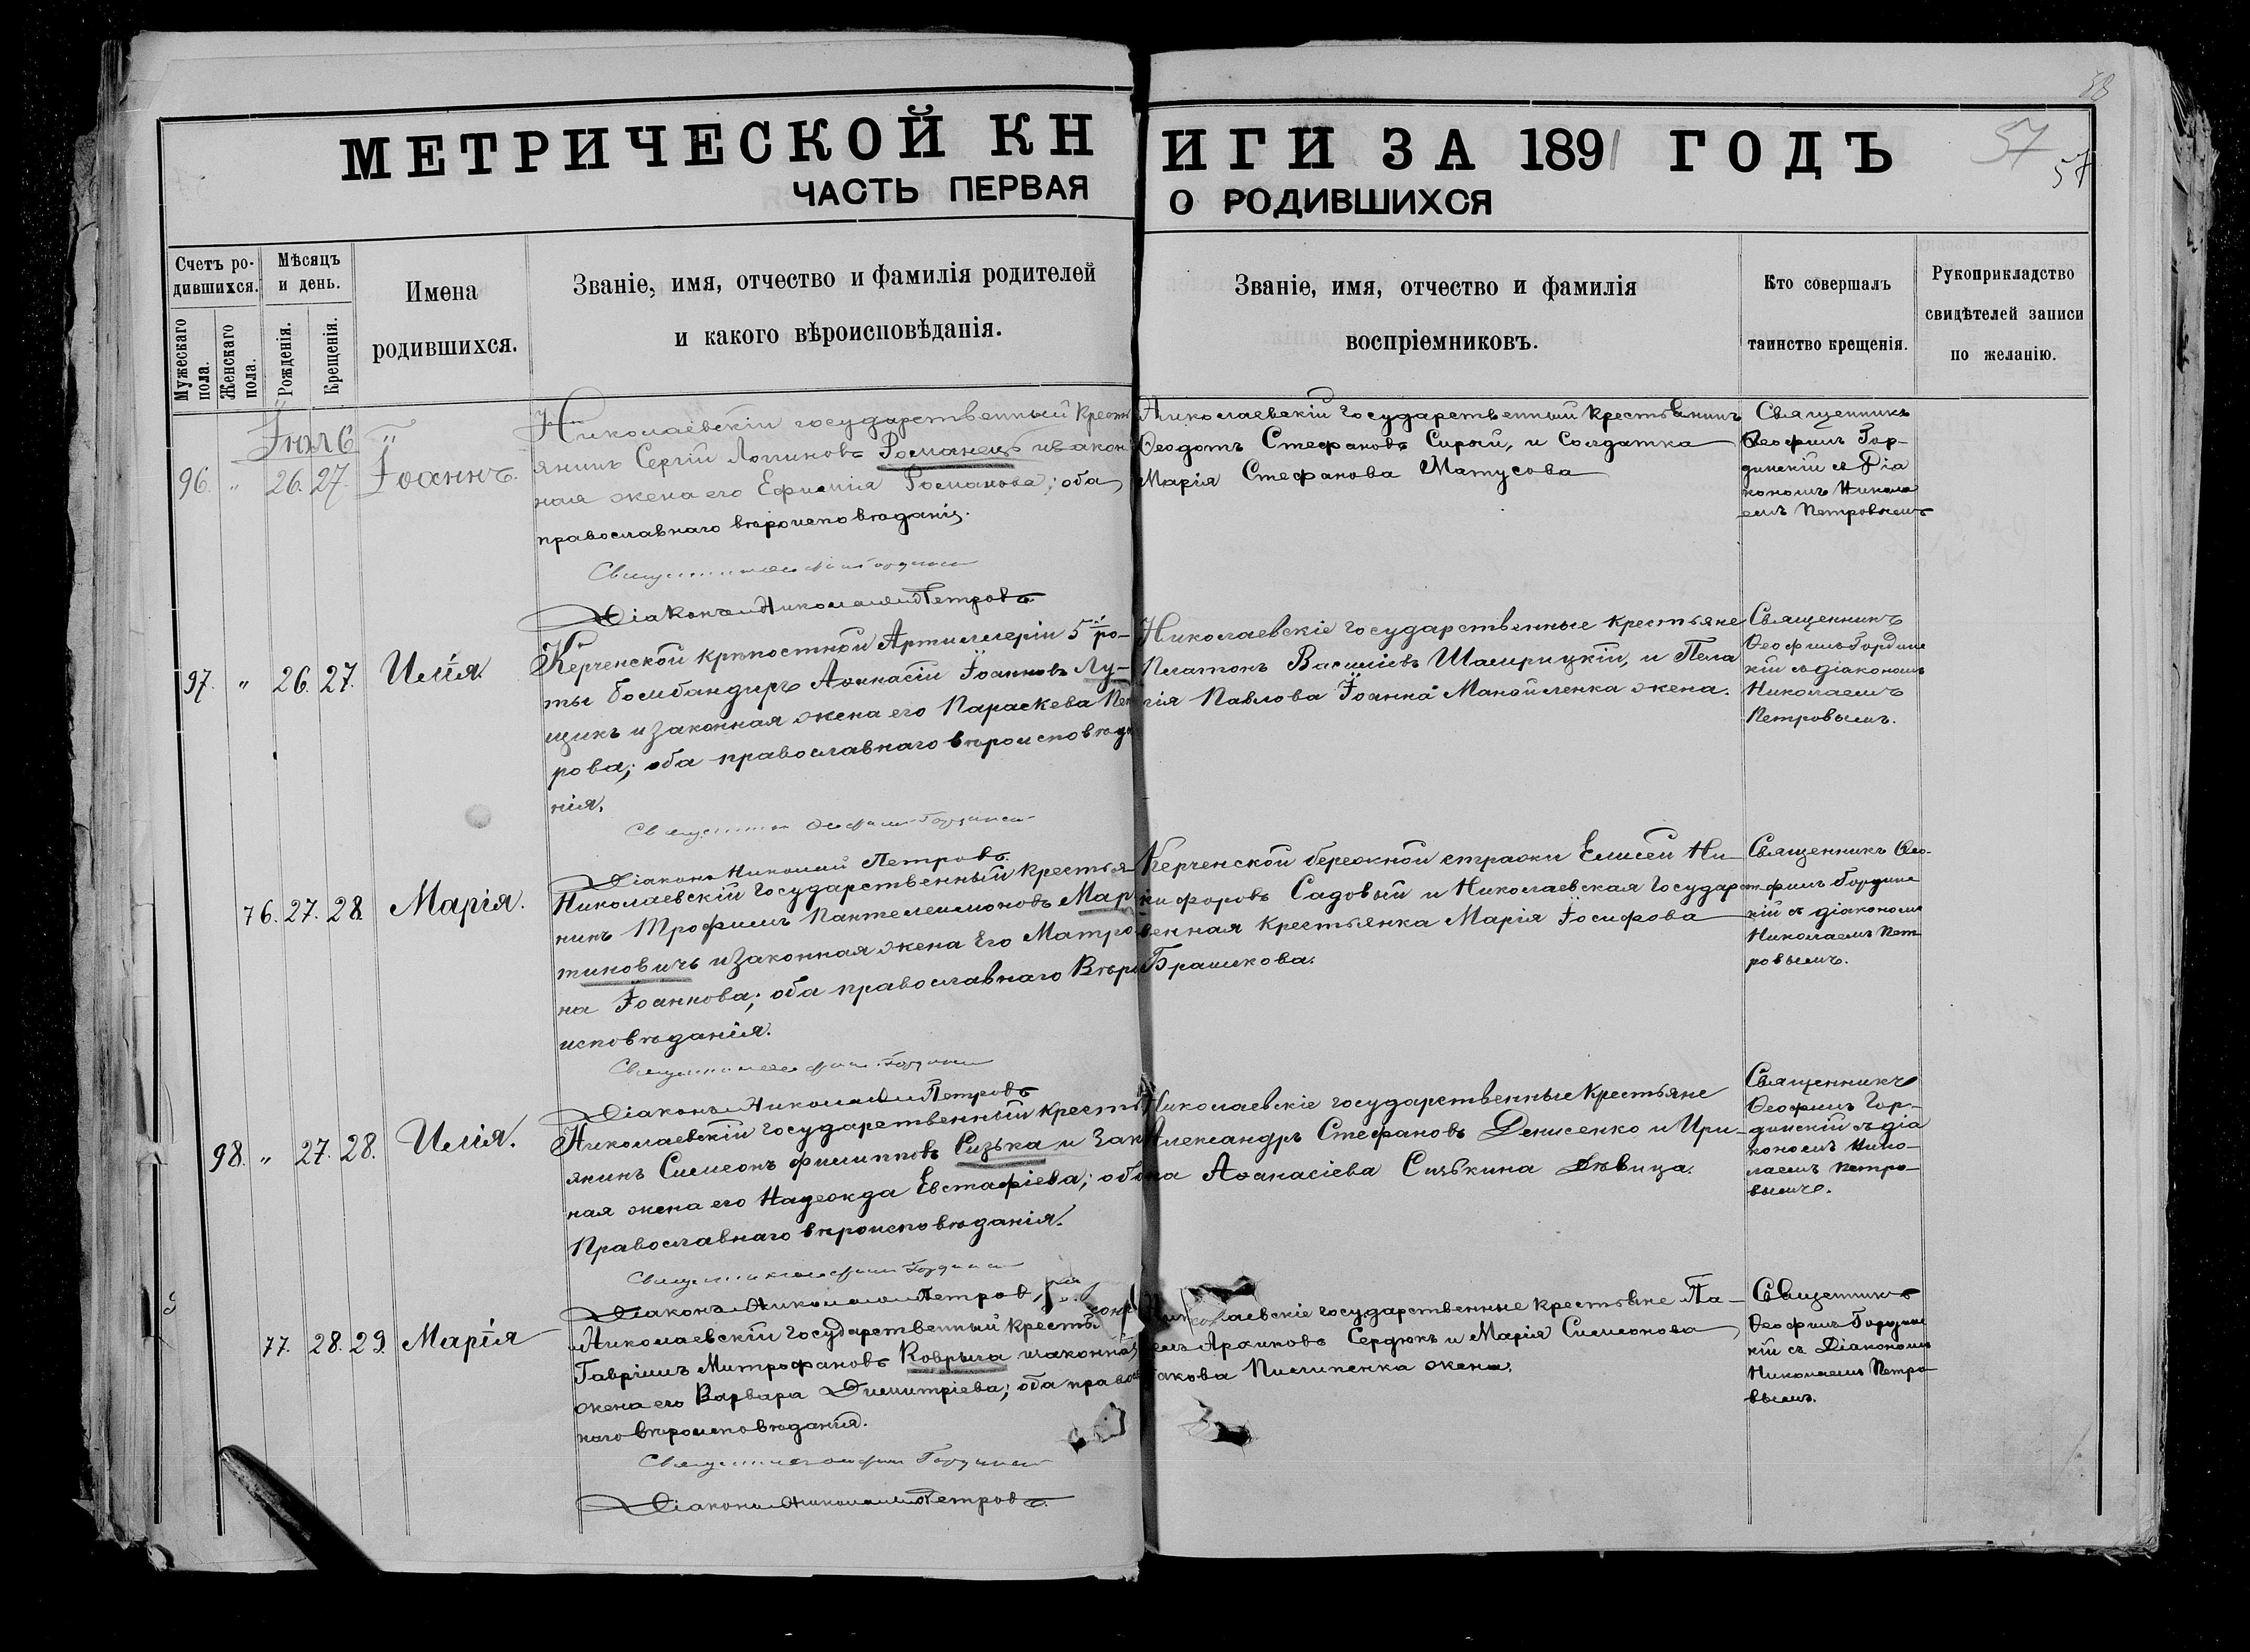 58
МЕТРИЧЕСКОЙ КНИГИ ЗА 1891 ГОДЪ
57
57
ЧАСТЬ ПЕРВАЯ О РОДИВШИХСЯ
Счетъ ро-
дившихся.
Мужескаго пола.
Женскаго пола.
Мѣсяцъ
и день.
Рожденія.
Крещенія.
Имена
родившихся.
Званіе, имя, отчество и фамилія родителей
и какого вѣроисповѣданія.
Званіе, имя, отчество и фамилія
воспріемниковъ.
Кто совершалъ
таинство крещенія.
Рукоприкладство
свидѣтелей записи
по желанію.
96. " 26. 27. Іоаннъ.
Николаевскій государственный крестъ
янинъ Сергій Логиновъ Романецъ и закон
ная жена его Ефимія Романова; оба
православнаго вѣроисповѣданія.
Діаконъ Николай Петровъ
Николаевскій государственный крестьянинъ
Ѳеодотъ Стефановъ Сирый, и солдатка
Марія Стефанова Матусова
Священникъ
Ѳеофилъ Гор-
динскій съ Діа
кономъ Никола
емъ Петровымъ
97. " 26. 27. Илія.
Керченской крѣпостной Артиллеріи 5й ро-
ты бомбандиръ Аѳанасій Іоанновъ Лу-
щикъ и законная жена его Параскева Пет
рова; оба православнаго вѣроисповѣда
нія.
Діаконъ Николай Петровъ
Николаевскіе государственные крестьяне
Платонъ Василіевъ Шамрицкій, и Пела
гія Павлова Іоанна Манойленка жена.
Священникъ
Ѳеофилъ Гордин
кій съ діакономъ
Николаемъ
Петровымъ.
76. 27. 28. Марія.
Николаевскій государственный крестья
нинъ Трофимъ Пантелеимоновъ Мар
тиновичъ и законная жена его Матро
на Іоаннова; оба православнаго вѣро
исповѣданія.
Діаконъ Николай Петровъ
Керченской бережной стражи Елисей Ни-
кифоровъ Садовый и Николаевская государст
венная крестьянка Марія Іосифова
Брашкова.
Священникъ Ѳео-
филъ Гордин
кій съ діакономъ
Николаемъ Пет
ровымъ.
98. " 27. 28. Илія.
Николаевскій государственный кресть
янинъ Симеонъ Филипповъ Сизька и зак
ная жена его Надежда Евстафіева; оба
православнаго вѣроисповѣданія.
Діаконъ Николай Петровъ
Николаевскіе государственные крестьяне
Александръ Стефановъ Денисенко и Ири-
на Аѳанасіева Сизькина дѣвица.
Священникъ
Ѳеофилъ Гор-
динскій съ діа
кономъ Нико-
лаемъ Петро-
вымъ.
77. 28. 29. Марія
Николаевскій государственный кресть
Гавріилъ Митрофановъ Коврыга и законная
жена его Варвара Димитріева; оба право
наго вѣроисповѣданія.
Діаконъ Николай Петровъ
Николаевскіе государственные крестьяне Па-
велъ Архиповъ Сердюкъ и Марія Симеонова
Іакова Пилипенка жена.
Священникъ
Ѳеофилъ Гордин
кій съ Діакономъ
Николаемъ Петро-
вымъ.